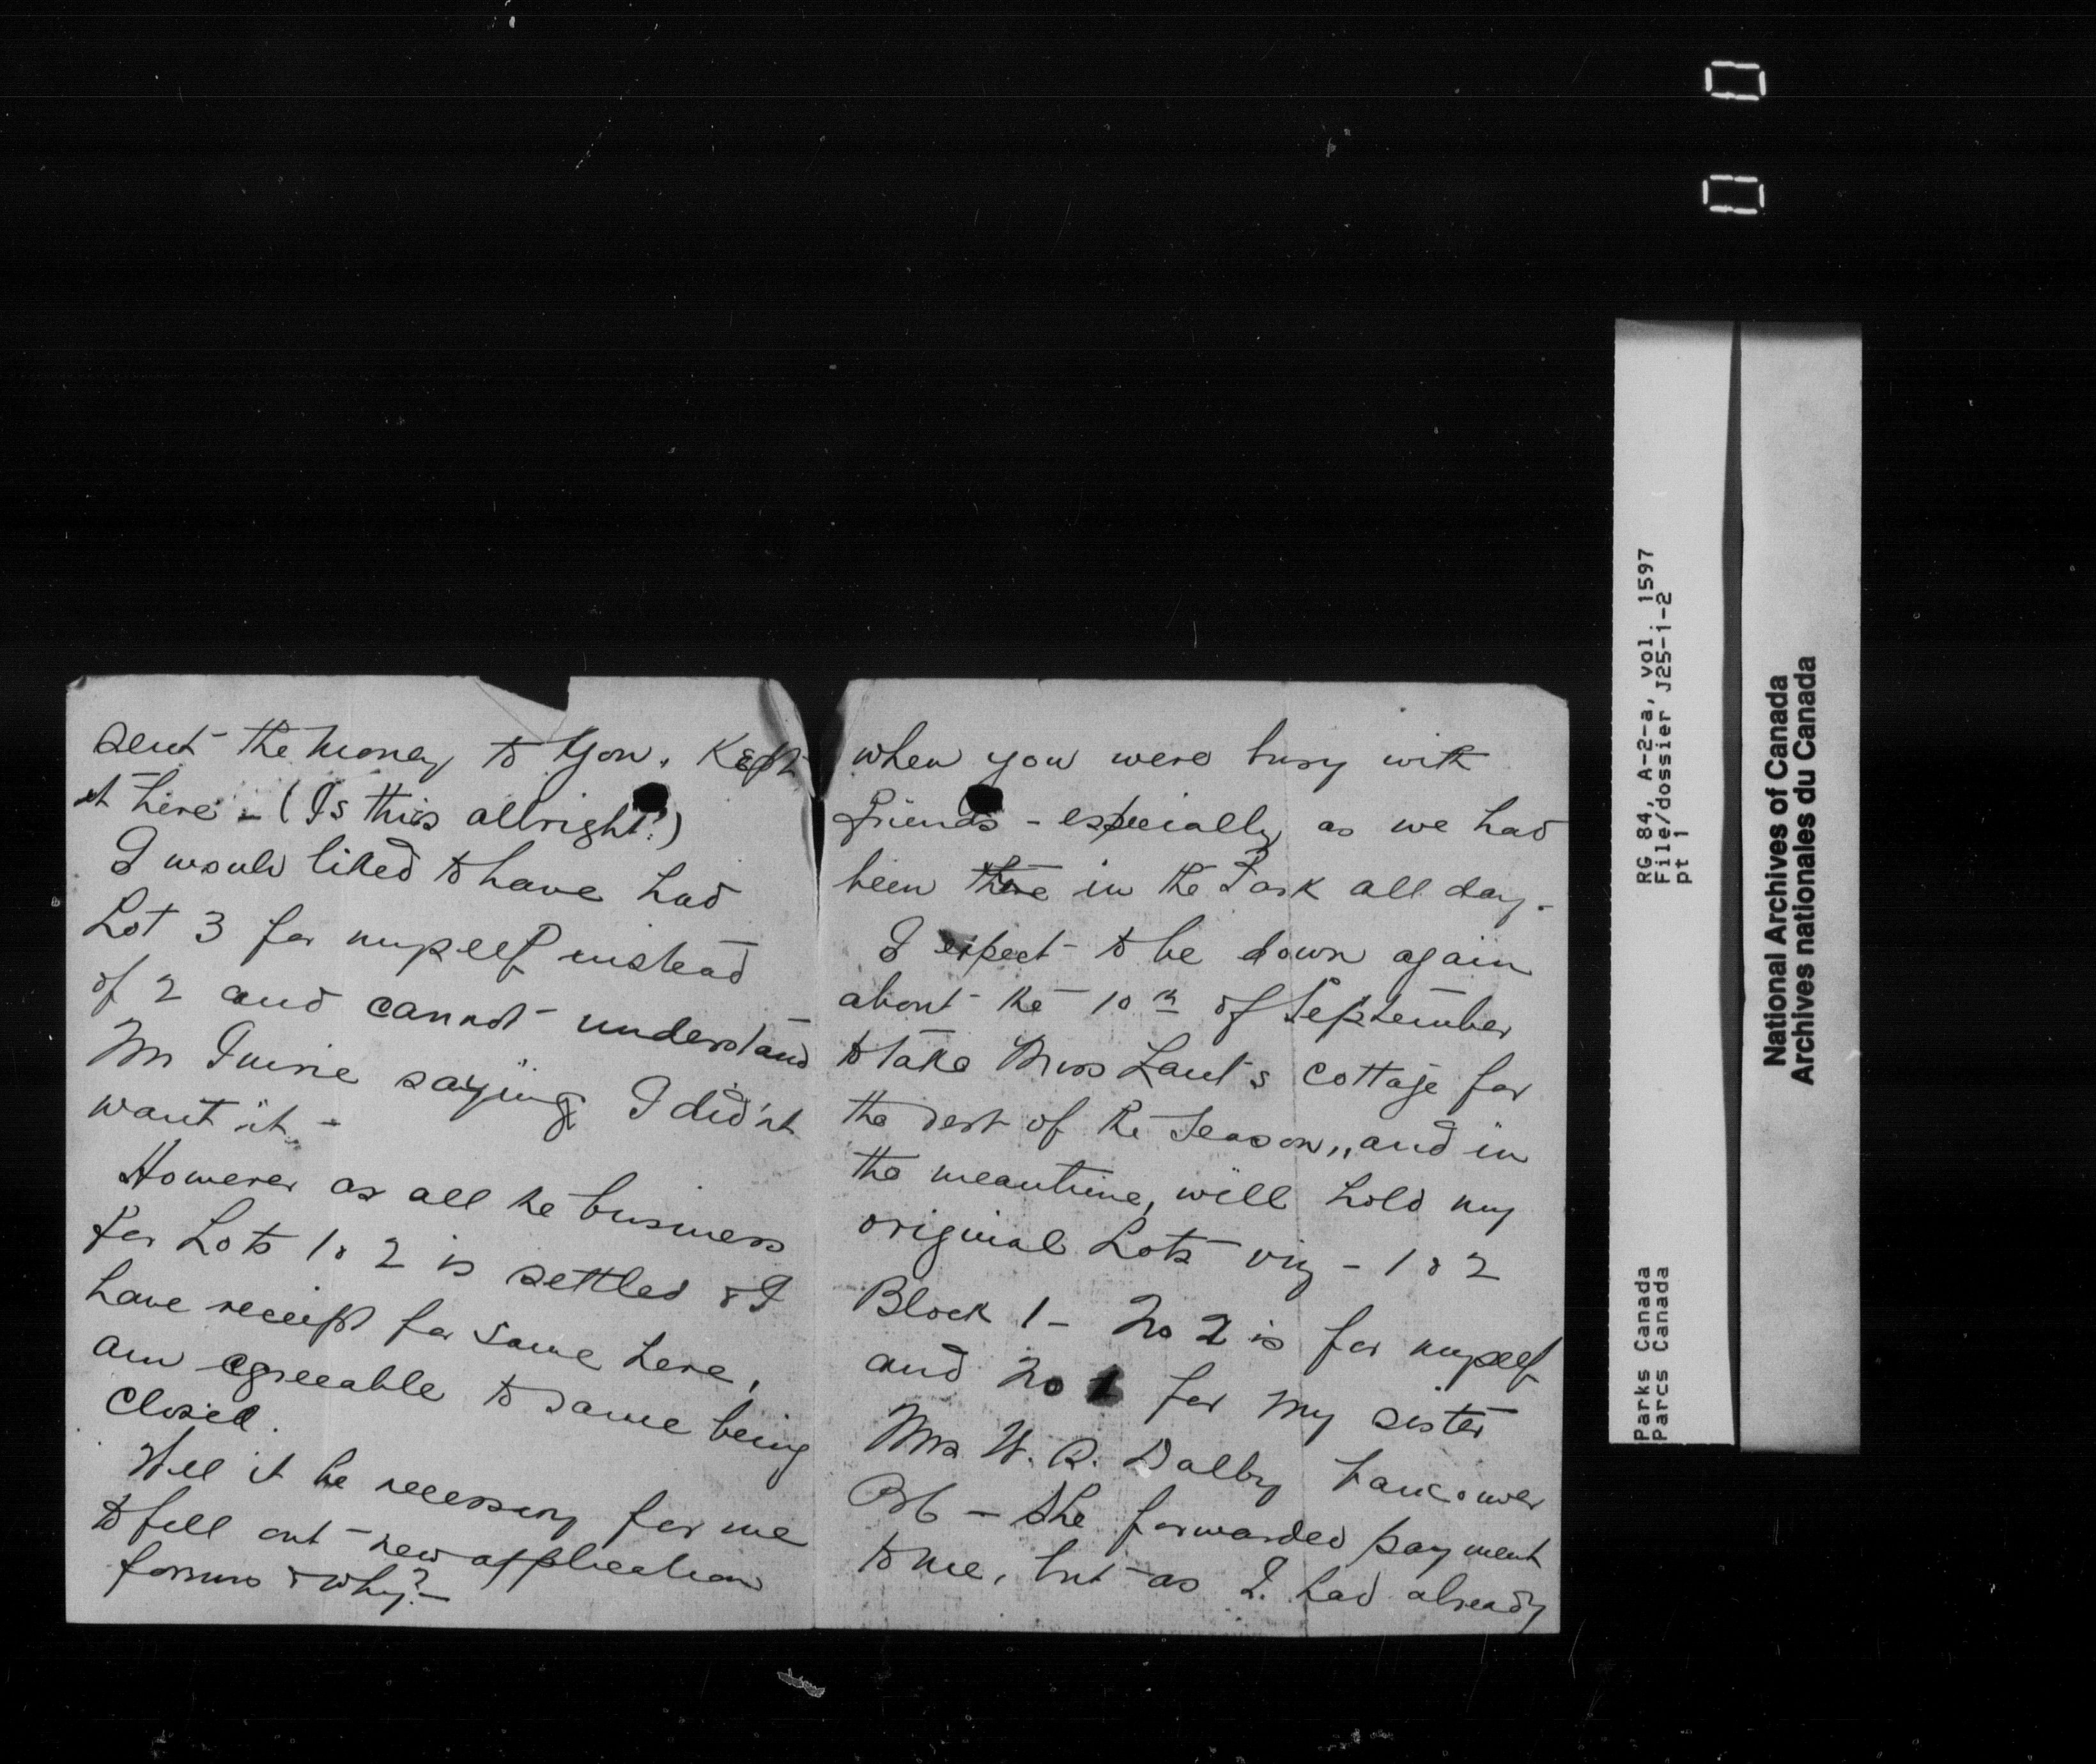 sent the money to you. Kept
it here - (Is this allright?)
I would liked to have had
Lot 3 for myself instead
of 2 and cannot understand
Mr saying I did'nt
want it -
However as all the business
for Lots 1 & 2 is settled & I
have receipt for same here,
am agreeable to same being
closed.
Will it be necessary for me
to fill out new application
forms & why? -
when you were busy with
friends - especially as we had
been there in the Park all day -
I expect to be down again
about the 10th of September
to take Miss Laut's cottage for
the rest of the season, and in
the meantime, will hold my
original Lots viz - 1 & 2
Block 1 - No 2 is for myself
and No 1 for my sister
Mrs W. R. Dalby Vancouver
BC - She forwarded payment
to me, but as I had already
RG 84, A-2-a, vol. 1597
File/dossier J25-1-2
pt 1
Parks Canada
Parcs Canada
National Archives of Canada
Archives nationales du Canada